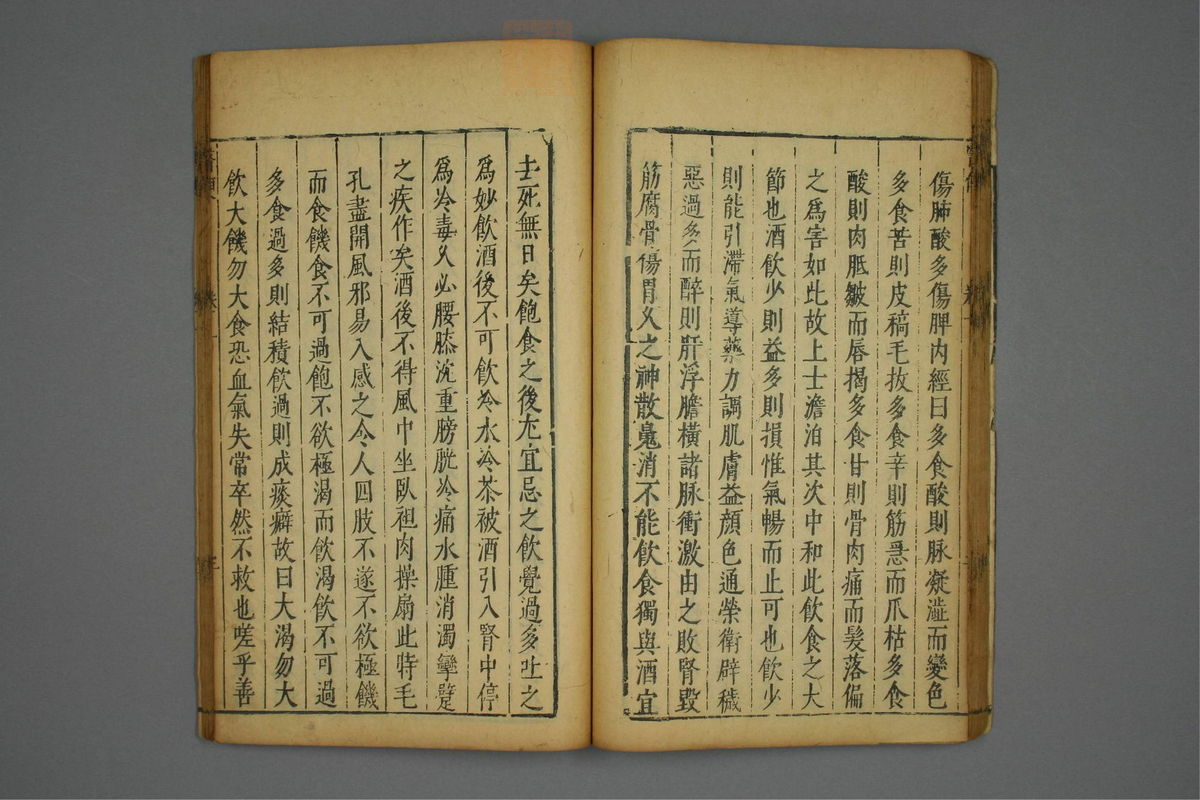 傷肺酸多傷脾内經曰多食酸則脉凝澁而變色
多食苦則皮稿毛拔多食辛則筋急而爪枯多食
酸則肉胝皺而唇揭多食甘則骨肉痛而髮落偏
之爲害如此故上士澹泊其次中和此飲食之大
節也酒飲少則益多則損惟氣暢而止可也飲少
則能引滯氣導藥力調肌膚益顔色通榮衛辟穢
惡過多而醉則肝浮膽橫諸脉衝激由之敗腎毀
筋腐骨傷胃久之神散䰟消不能飲食獨與酒宜
去死無日矣飽食之後尤宜忌之飲覺過多吐之
爲妙飲酒後不可飲冷水冷茶被酒引入腎中停
爲冷毒久必腰膝沈重膀胱冷痛水腫消濁攣躄
之疾作矣酒後不得風中坐臥袒肉操扇此時毛
孔盡開風邪易入感之令人四肢不遂不欲極饑
而食饑食不可過飽不欲極渴而飲渴飲不可過
多食過多則結積飲過則成痰癖故曰大渴勿大
飲大饑勿大食恐血氣失常卒然不救也嗟乎善